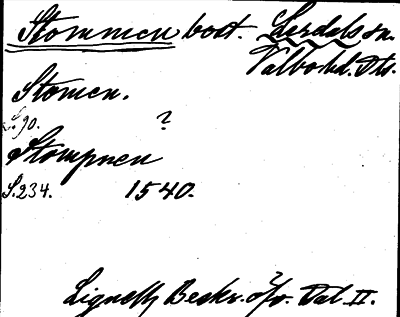 Stommen bort. Lerdals sn.
Valbo hd. Dls.
Stomen.
S. 90. ?
Stompnen
S. 234. 1540.
Lignell, Beskr. ö/v. Dal II.